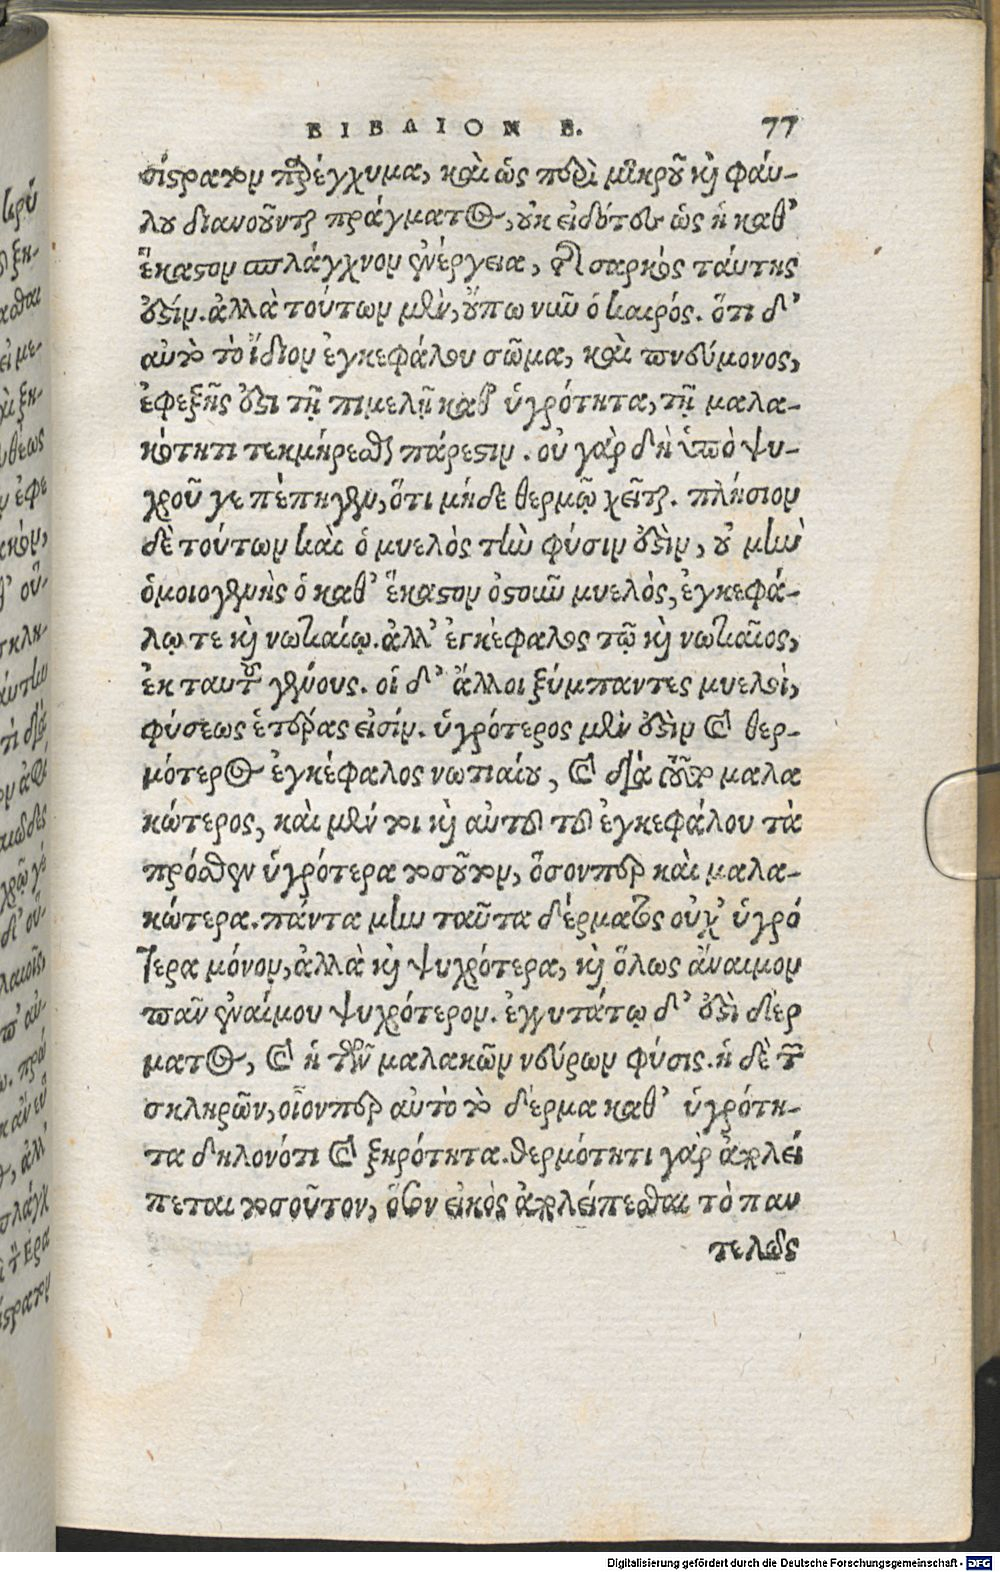 ΒΙΒΛΙΟΝ Β. 77
σίστρατον παρέγχυμα, καὶ ὡς περὶ μικροῦ καὶ φάυ-
λου διανοοῦνται πράγματος, ουκ ειδότες ὡς ἡ καθ’
ἕκαστον σπλάγχνον ἐνέργεια, διὰ σαρκὸς τάυτης
ἐστίν. ἀλλὰ τούτων μὲν, ὄυπω νῦν ὁ καιρός. ὅτι δ’
αυτὸ τὸ ἴδιον ἐγκεφάλου σῶμα, καὶ πνεύμονος,
ἐφεξῆς ἐστι τῇ πιμελῇ καθ’ ὑγρότητα, τῇ μαλα-
κότητι τεκμήρεσθαι πάρεστιν. οὐ γὰρ δὴ ὑπὸ ψυ-
χροῦ γε πέπηγεν, ὅτι μήδε θερμῷ χεῖται. πλήσιον
δὲ τούτων καὶ ὁ μυελὸς τὴν φύσιν ἐστὶν, οὐ μὴν
ὁμοιογενὴς ὁ καθ’ ἕκαστον ὀστοῦν μυελὸς, ἐγκεφά-
λῳ τε καὶ νωτιαίῳ. ἀλλ’ ἐγκέφαλος τῷ καὶ νωτιαῖος,
ἐκ ταυτοῦ γένους. οἱ δ’ ἄλλοι ξύμπαντες μυελοὶ,
φύσεως ἑτέρας εἰσίν. ὑγρότερος μὲν ἐστὶν καὶ θερ-
μότερος ἐγκέφαλος νωτιαίου, καὶ διὰ τοῦτο μαλα
κώτερος, καὶ μέν τοι καὶ αὐτοῦ τοῦ ἐγκεφάλου τὰ
πρόσθεν ὑγρότερα τοσοῦτον, ὅσονπερ καὶ μαλα-
κώτερα. πάντα μὴν ταῦτα δέρματος οὐχ’ ὑγρό
τερα μόνον, ἀλλὰ καὶ ψυχρότερα, καὶ ὅλως ἄναιμον
πᾶν ἐναίμου ψυχρότερον. ἐγγυτάτῳ δ’ ἐστὶ δέρ
ματος, καὶ ἡ τῶν μαλακῶν νεύρων φύσις. ἡ δὲ τῶν
σκληρῶν, οἷονπερ αὐτὸ τὸ δέρμα καθ’ ὑγρότη-
τα δηλονότι καὶ ξηρότητα. θερμότητι γὰρ ἀπολεί
πεται τοσοῦτον, ὅσον εἰκὸς ἀπολείπεσθαι τὸ παν
τελῶς
Digitalisierung gefördert durch die Deutsche Forschungsgemeinschaft - DFG